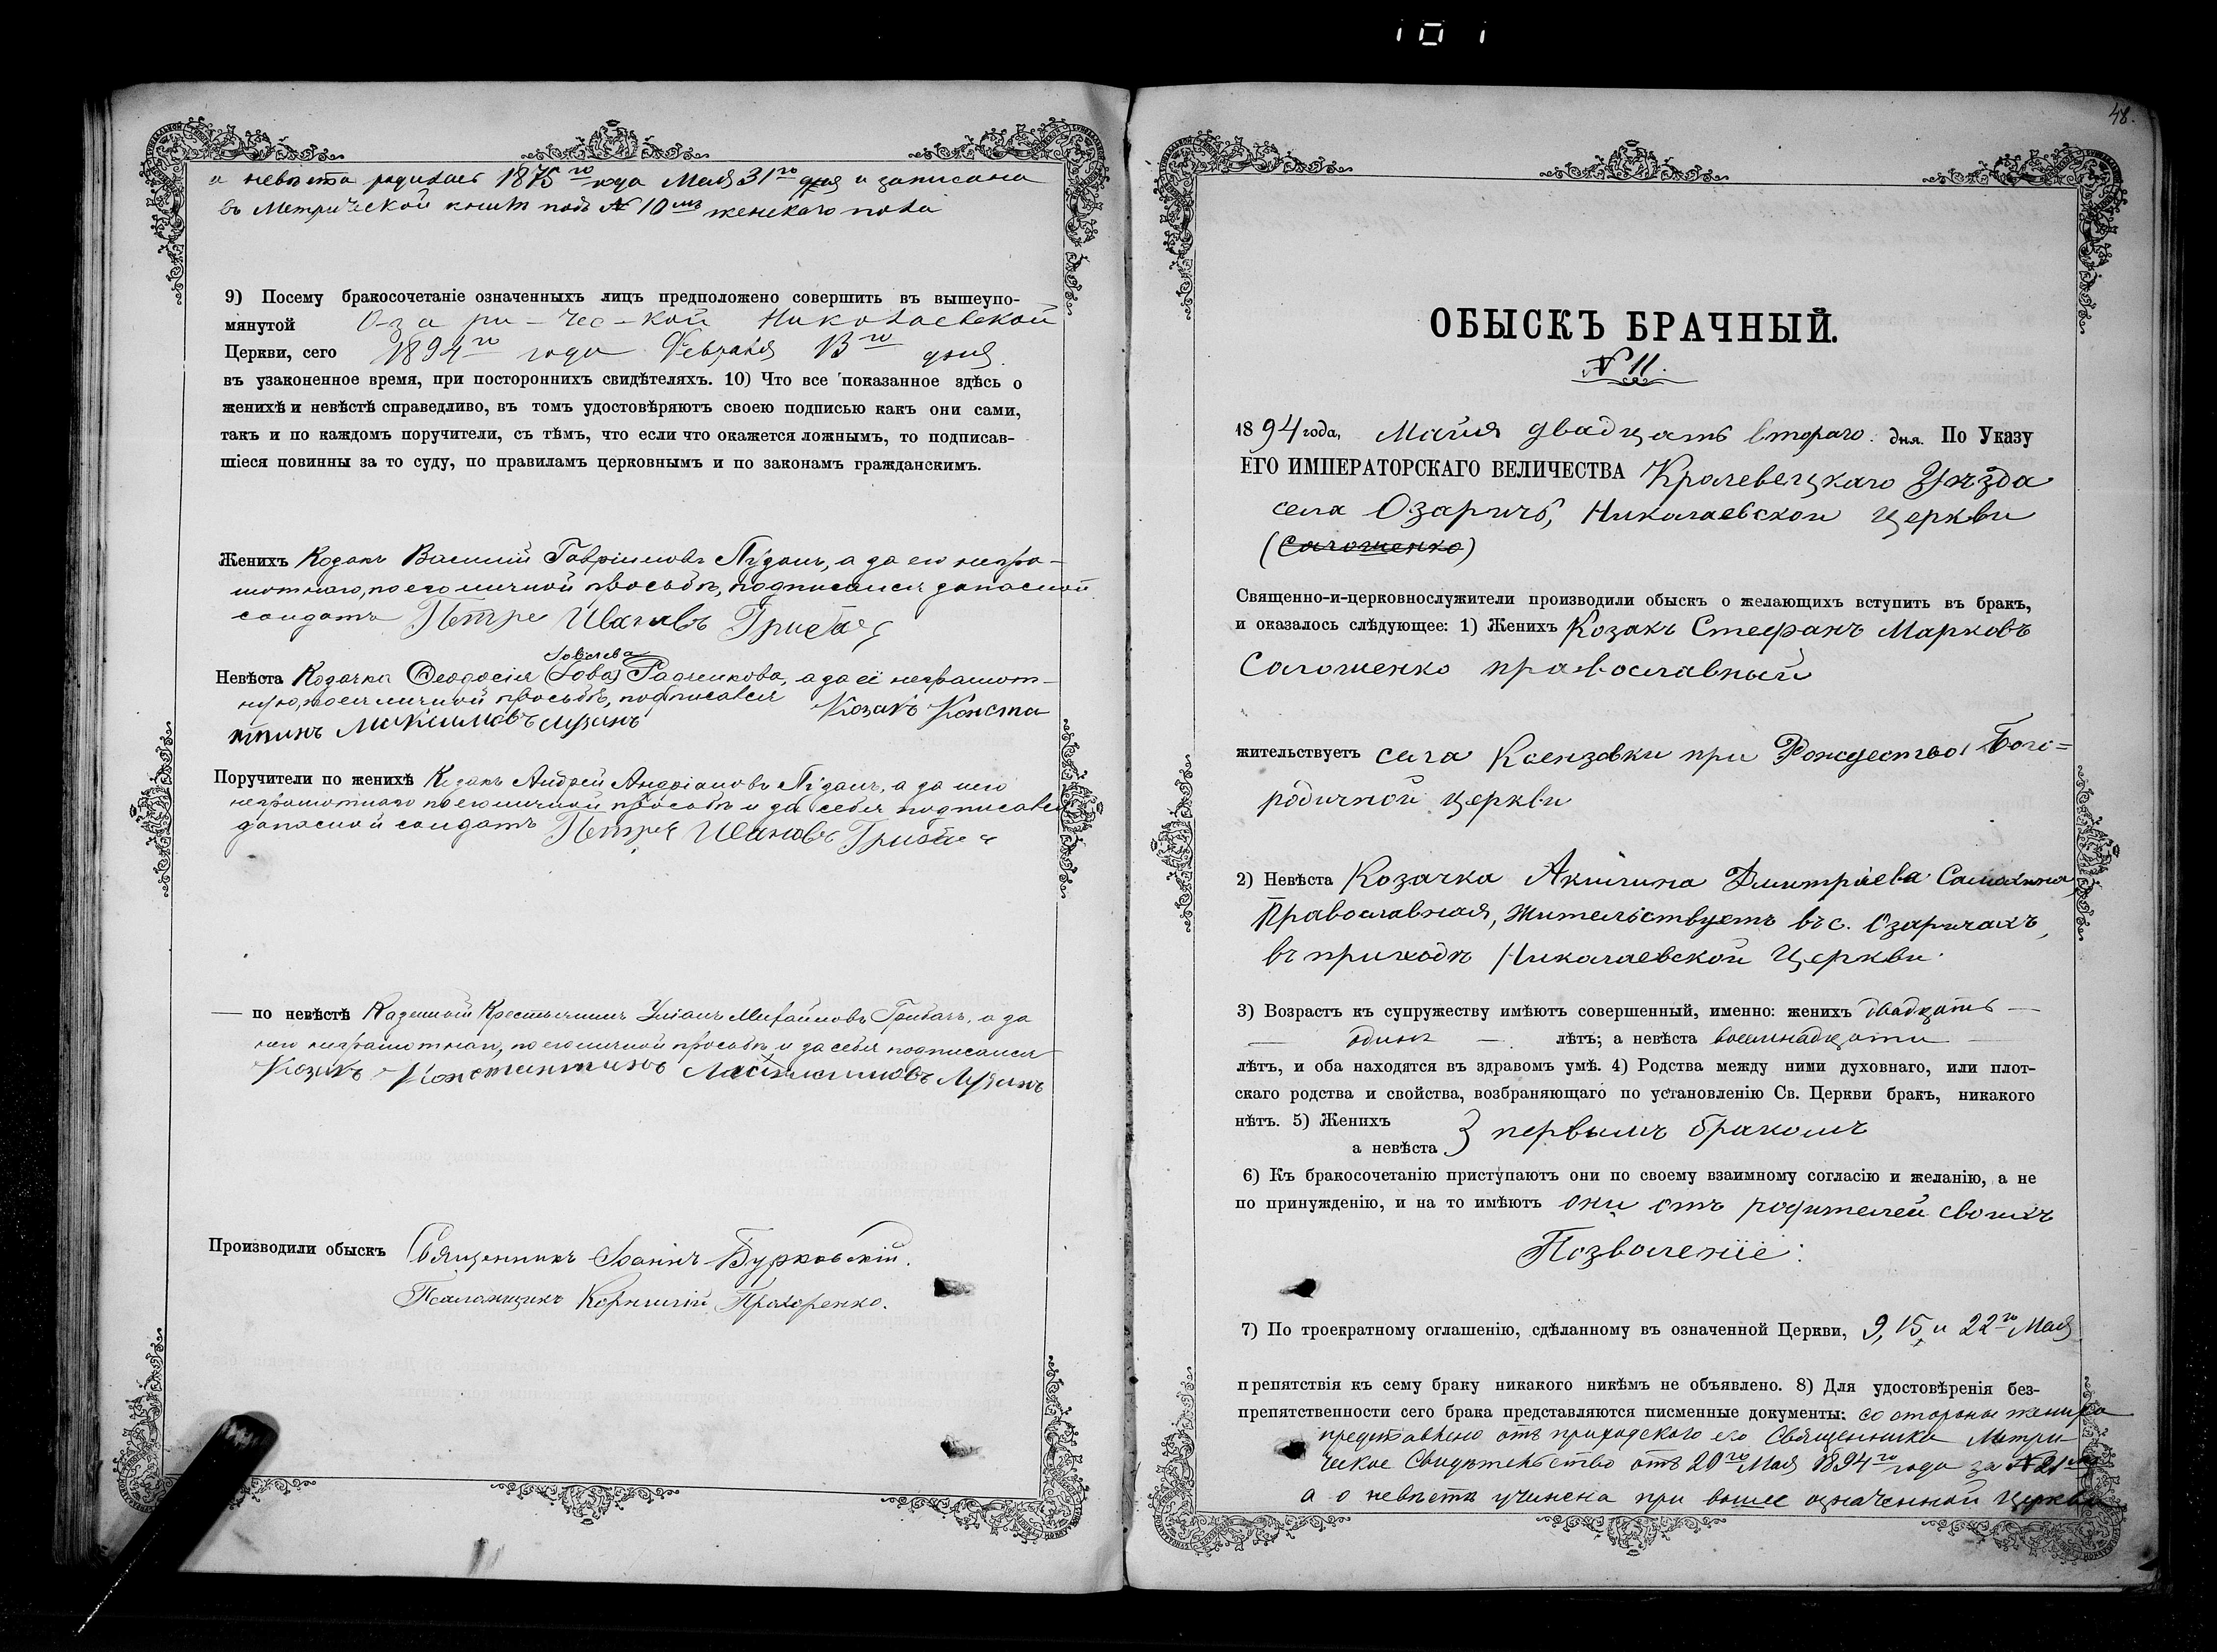 101
а невѣста родилась 1875го года Мая 31го дня и записана
въ Метрической книгѣ подъ № 10мъ женскаго пола
9) Посему бракосочетаніе означенныхъ лицъ предположено совершить въ вышеупо-
мянутой О-за-ри-чес-кой Николаевской
Церкви, сего 1894го года Февраля 13го дня.
въ узаконенное время, при постороннихъ свидѣтеляхъ. 10) Что все показанное здѣсь о
женихѣ и невѣстѣ справедливо, въ томъ удостовѣряютъ своею подписью какъ они сами,
такъ и по каждомъ поручители, съ тѣмъ, что если что окажется ложнымъ, то подписав-
шіеся повинны за то суду, по правиламъ церковнымъ и по законамъ гражданскимъ.
Женихъ Козакъ Василій Гавріиловъ а за его негра-
мотнаго, по его личной просьбѣ, подписался запасной
солдатъ Петръ Ивановъ
Невѣста Козачка Ѳеодосія Радченкова, а за её неграмот-
ную, по ея личной просьбѣ, подписался Козакъ Конста
нтинъ Максимовъ
Поручители по женихѣ Козакъ Андрей а за него
неграмотнаго по его личной просьбѣ и за себя подписался
запасной солдатъ Петръ Ивановъ
— по невѣстѣ Казенный Крестьянинъ Михайловъ а за
него неграмотнаго, по его личной просьбѣ и за себя подписался
Козакъ Константинъ Максимовъ
Производили обыскъ Священникъ Іоаннъ Бурковскій.
Псаломщикъ Корнилій Прохоренко.
48.
ОБЫСКЪ БРАЧНЫЙ.
№ 11.
1894 года, Майя двадцать втораго дня. По Указу
ЕГО ИМПЕРАТОРСКАГО ВЕЛИЧЕСТВА Кролевецкаго Уѣзда
села Озаричъ, Николаевской Церкви
(Солошенко)
Священно-и-церковнослужители производили обыскъ о желающихъ вступить въ бракъ,
и оказалось слѣдующее: 1) Женихъ Козакъ Стефанъ Марковъ
Солошенко православный
жительствуетъ села Ксензовки при Рождество Бого=
родичной церкви
2) Невѣста Козачка Акилина Дмитріева
Православная, жительствуетъ въ с. Озаричахъ,
въ приходѣ Николаевской Церкви.
3) Возрастъ къ супружеству имѣютъ совершенный, именно: женихъ двадцать —
— одинъ — лѣтъ; а невѣста восемнадцати —
лѣтъ, и оба находятся въ здравомъ умѣ. 4) Родства между ними духовнаго, или плот-
скаго родства и свойства, возбраняющаго по установленію Св. Церкви бракъ, никакого
нѣтъ. 5) Женихъ
а невѣста } первымъ бракомъ
6) Къ бракосочетанію приступаютъ они по своему взаимному согласію и желанію, а не
по принужденію, и на то имѣютъ они отъ родителей своихъ
Позволеніе.
7) По троекратному оглашенію, сдѣланному въ означенной Церкви, 9, 15, и 22го Мая
препятствія къ сему браку никакого никѣмъ не объявлено. 8) Для удостовѣренія без-
препятственности сего брака представляются писменные документы: со стороны жениха
представлено отъ приходского его Священника Метри
ческое Свидѣтельство отъ 20го Мая 1894го года за № 21мъ
а о невѣстѣ учинена при выше означенной Церкви